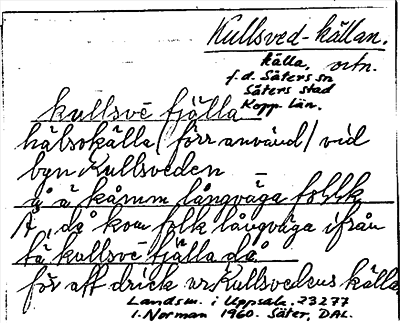 Kullsved-källan.
källa, ortn.
f.d. Säters sn
Säters stad
Kopp. län.
kullsvē fjälla
hälsokälla (förr använd) vid
byn Kullsveden –
å å kåmm långväga follk
Å, då kom folk långväga ifrån
tä kullsvē fjälla då
för att drick ur Kullsvedens källa
Landsm. i Uppsala. 23277
I. Norman 1960. Säter, DAL.